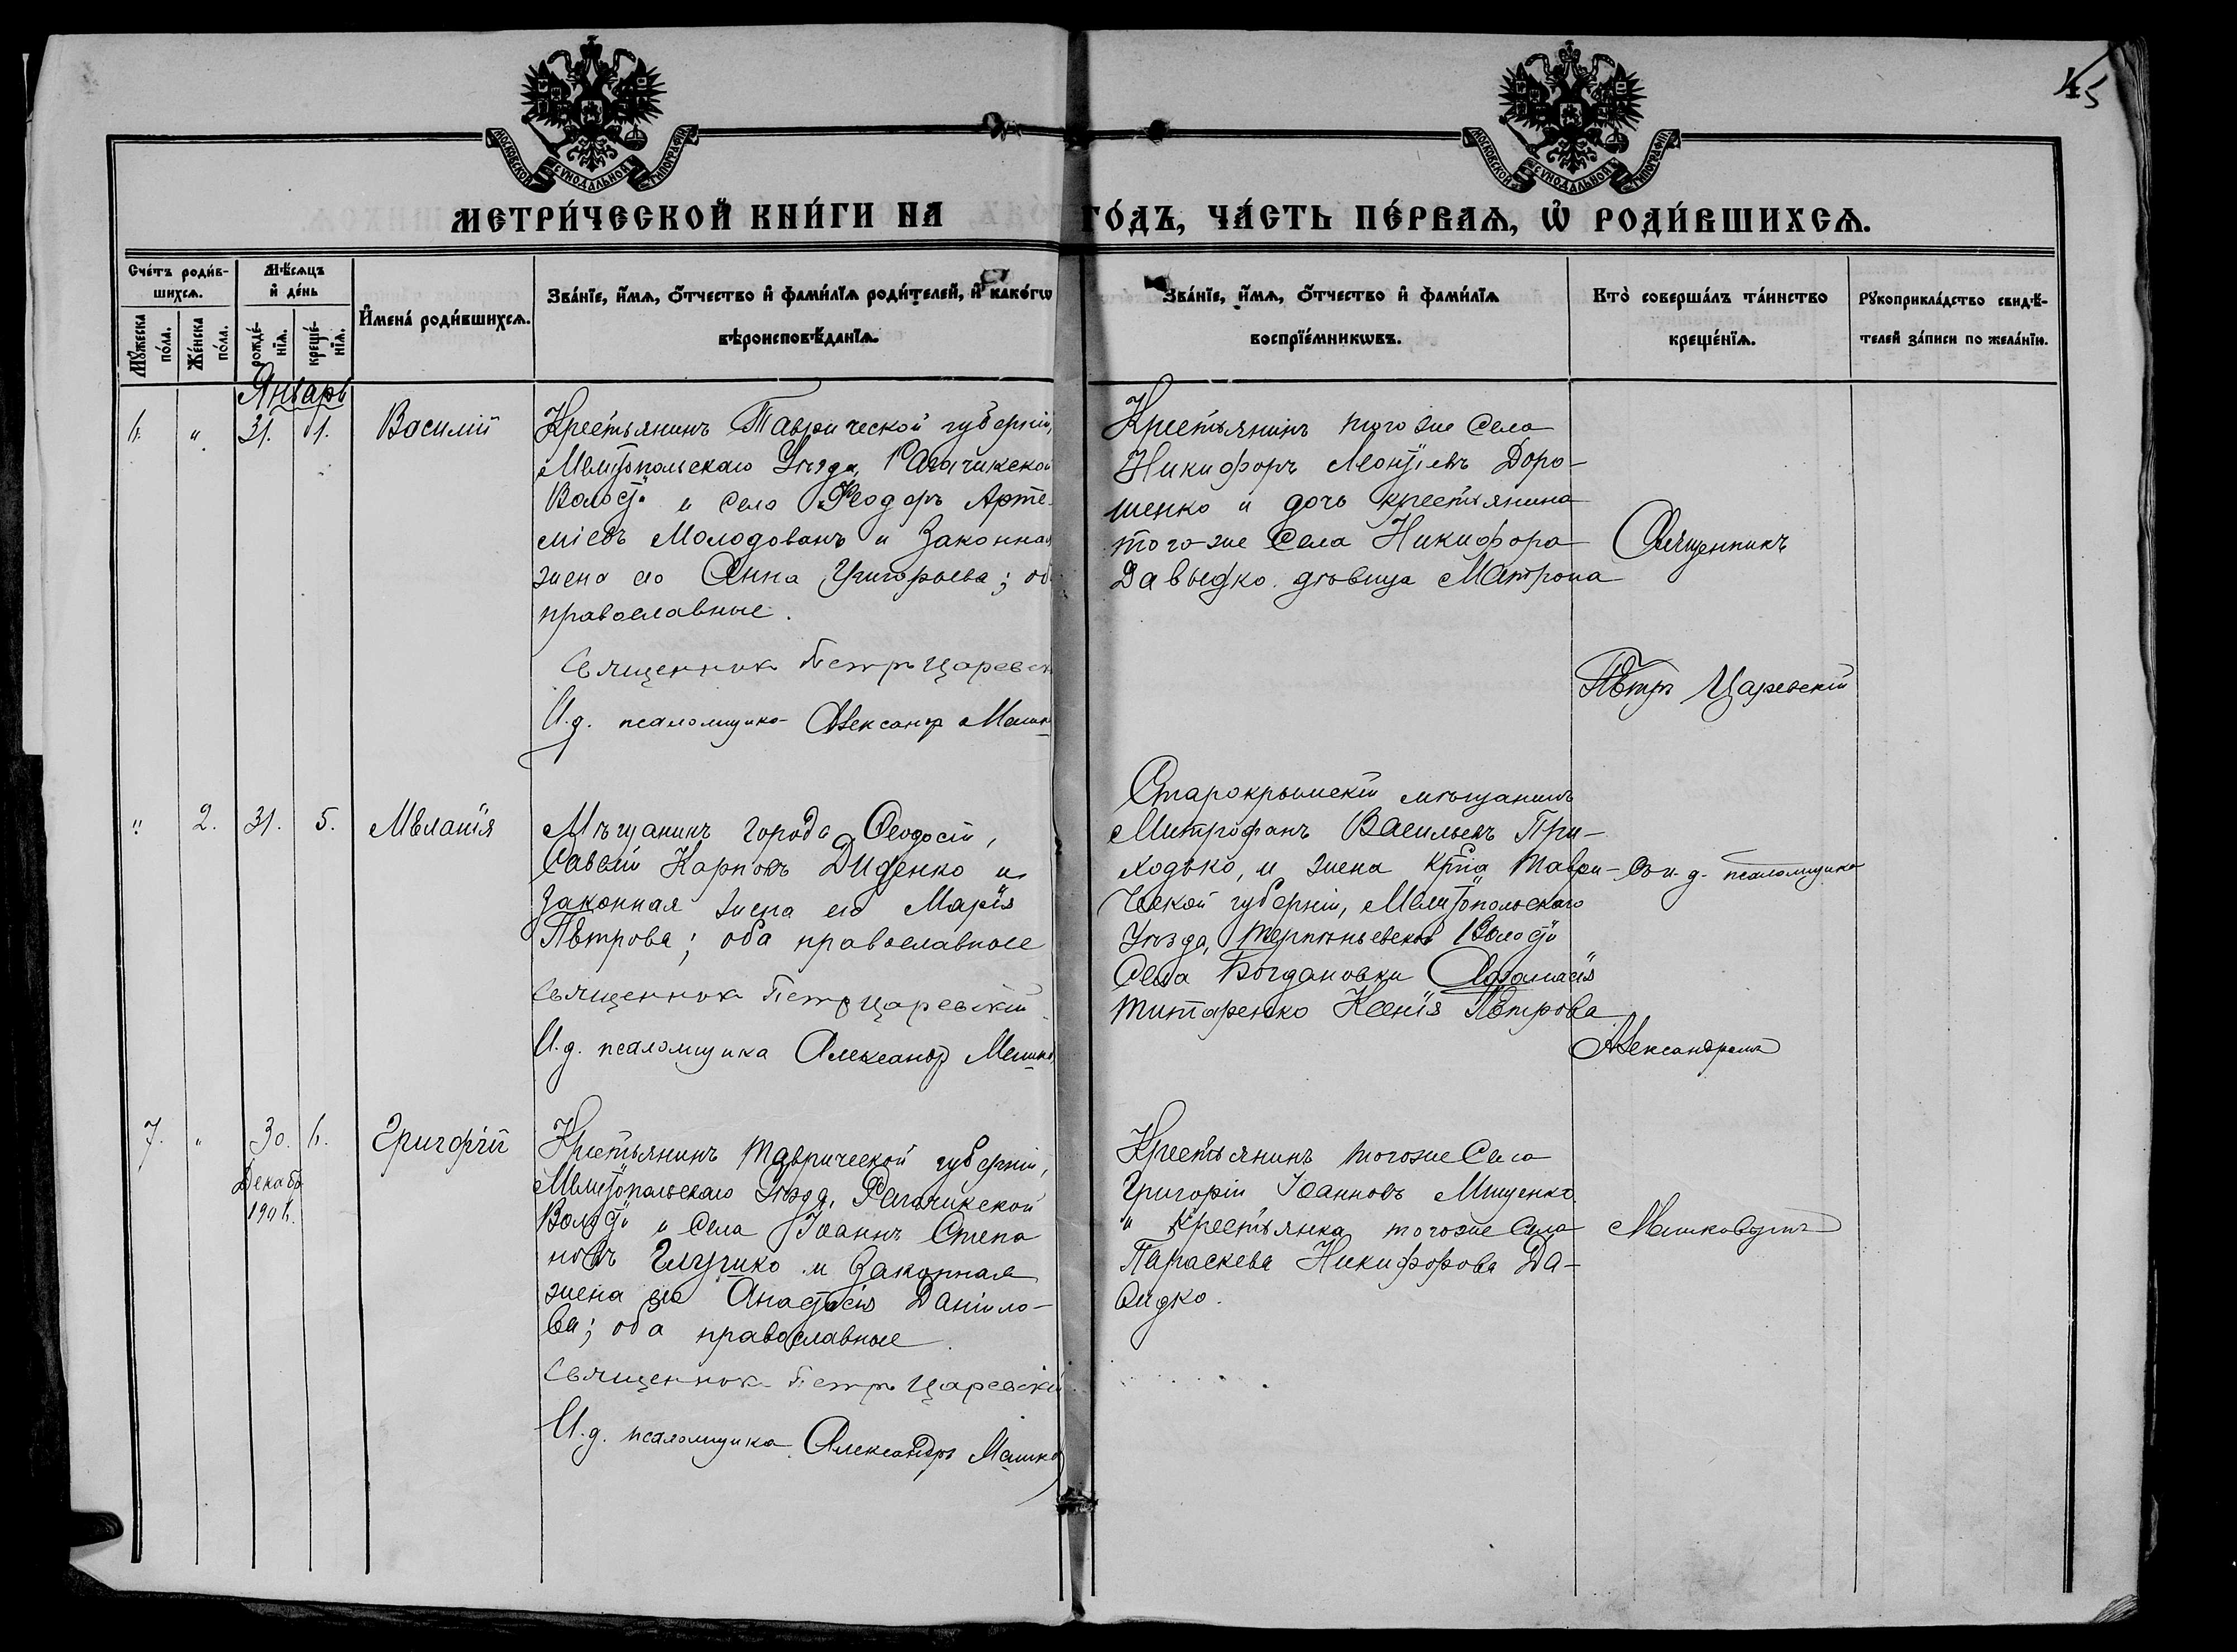 МОСКОВСКОЙ СУНОДАЛЬНОЙ ТИПОГРАФІИ
МОСКОВСКОЙ СУНОДАЛЬНОЙ ТИПОГРАФІИ
45
МЕТРИ́ЧЕСКОЙ КНИ́ГИ НА ГО́ДЪ, ЧА́СТЬ ПЕ́РВАѦ, Ѿ РОДИ́ВШИХСѦ.
Сче́тъ роди́в-
шихсѧ.
Мѣ́сѧцъ
и҆ де́нь
Мꙋ́жеска по́ла.
Же́нска по́ла.
рожде́-
нїѧ.
креще́-
нїѧ.
И҆мена́ роди́вшихсѧ.
Зва́нїе, и҆́мѧ, ѻ҆́тчество и҆ фами́лїѧ роди́телей, и҆ како́гѡ
вѣроисповѣ́данїѧ.
Зва́нїе, и҆́мѧ, ѻ҆́тчество и҆ фами́лїѧ
воспрїе́мникѡвъ.
Кто̀ соверша́лъ та́инство
креще́нїѧ.
Рꙋкоприкла́дство свидѣ́-
телей за́писи по жела́нїю.
Январь
6. " 31. 1. Василій
Крестьянинъ Таврической губерніи,
Мелитопольскаго Уѣзда, Рогачикской
Волости и села Ѳеодоръ Арте-
міевъ Молодованъ и законная
жена его Анна Григорьева; оба
православные.
Священникъ Петръ Царевск
И.д. псаломщика Александръ Машк
Крестьянинъ того же села
Никифоръ Леонтіевъ Доро-
шенко и дочь крестьянина
того-же села Никифора
Давыдко дѣвица Матрона
Священникъ
Петръ Царевскій
" 2. 31. 5. Меланія
Мѣщанинъ города Ѳеодосіи,
Савелій Карповъ Диденко и
законная жена его Марія
Петрова; оба православные
Священникъ Петръ Царевскій
И.д. псаломщика Александръ Машко
Старокрымскій мѣщанинъ
Митрофанъ Васильевъ При-
ходько, и жена кр-на Таври-
ческой губерніи, Мелитопольскаго
Уѣзда, Терпѣньевской Волости
Села Богдановки Аѳанасія
Титаренко Ксенія Петрова
Съ и.д. псаломщика
Александромъ
7. " 30. 6. Григорій
Декабр
1906.
Крестьянинъ Таврической губерніи,
Мелитопольскаго Уѣзда, Рогачикской
Волости и Села Іоаннъ Степа
новъ и законная
жена его Анастасія Данило-
ва; оба православные.
Священникъ Петръ Царевскій
И.д. псаломщика Александръ Машко
Крестьянинъ тогоже Села
Григорій Іоанновъ Мищенко
и крестьянка тогоже Села
Параскева Никифорова Да-
видко.
Машковымъ